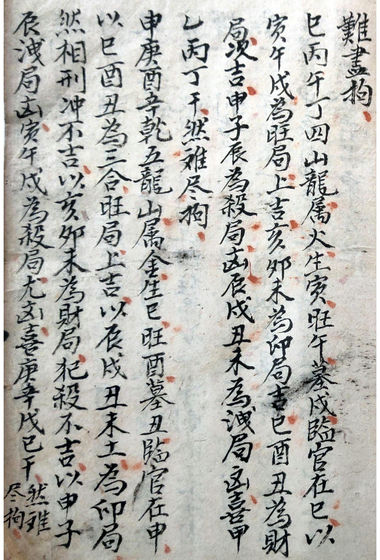 難盡拘
巳丙午丁四山龍属火生寅旺午墓戌臨官在巳以
寅午戌為旺局上吉亥卯未為印局吉巳酉丑為財
局次吉申子辰為殺局凶辰戌丑未為洩局凶喜甲
乙丙丁干然难尽拘
申庚酉辛乾五龍山属金生巳旺酉墓丑臨官在申
以巳酉丑為三合旺局上吉以辰戌丑未土為印局
然相刑冲不吉以亥卯未為財局犯殺不吉以申子
辰洩局凶寅午戌為殺局尤凶喜庚辛戊巳干然难
尽拘